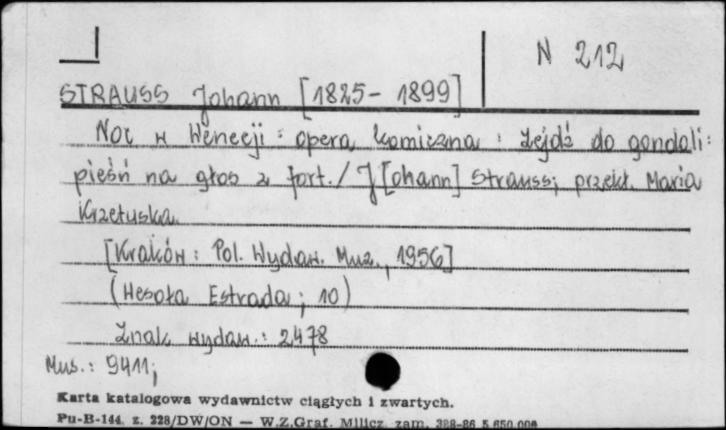 N 212
STRAUSS Johann [1825- 1899]
Noc w Wenecji : opera komiczna : Zejdź do gondoli :
pieśń na głos z fort. / J[ohann] Strauss; przekł. Maria
Krzetuska.
[Kraków : Pol. Wydaw. Muz., 1956]
(Wesoła Estrada ; 10)
Znak wydaw.: 2478
Mus.: 9411;
Karta katalogowa wydawnictw ciągłych i zwartych.
Pu-B-144. z. 228/DW/ON — W.Z.Graf. Milicz zam. 328-86 5.650.000